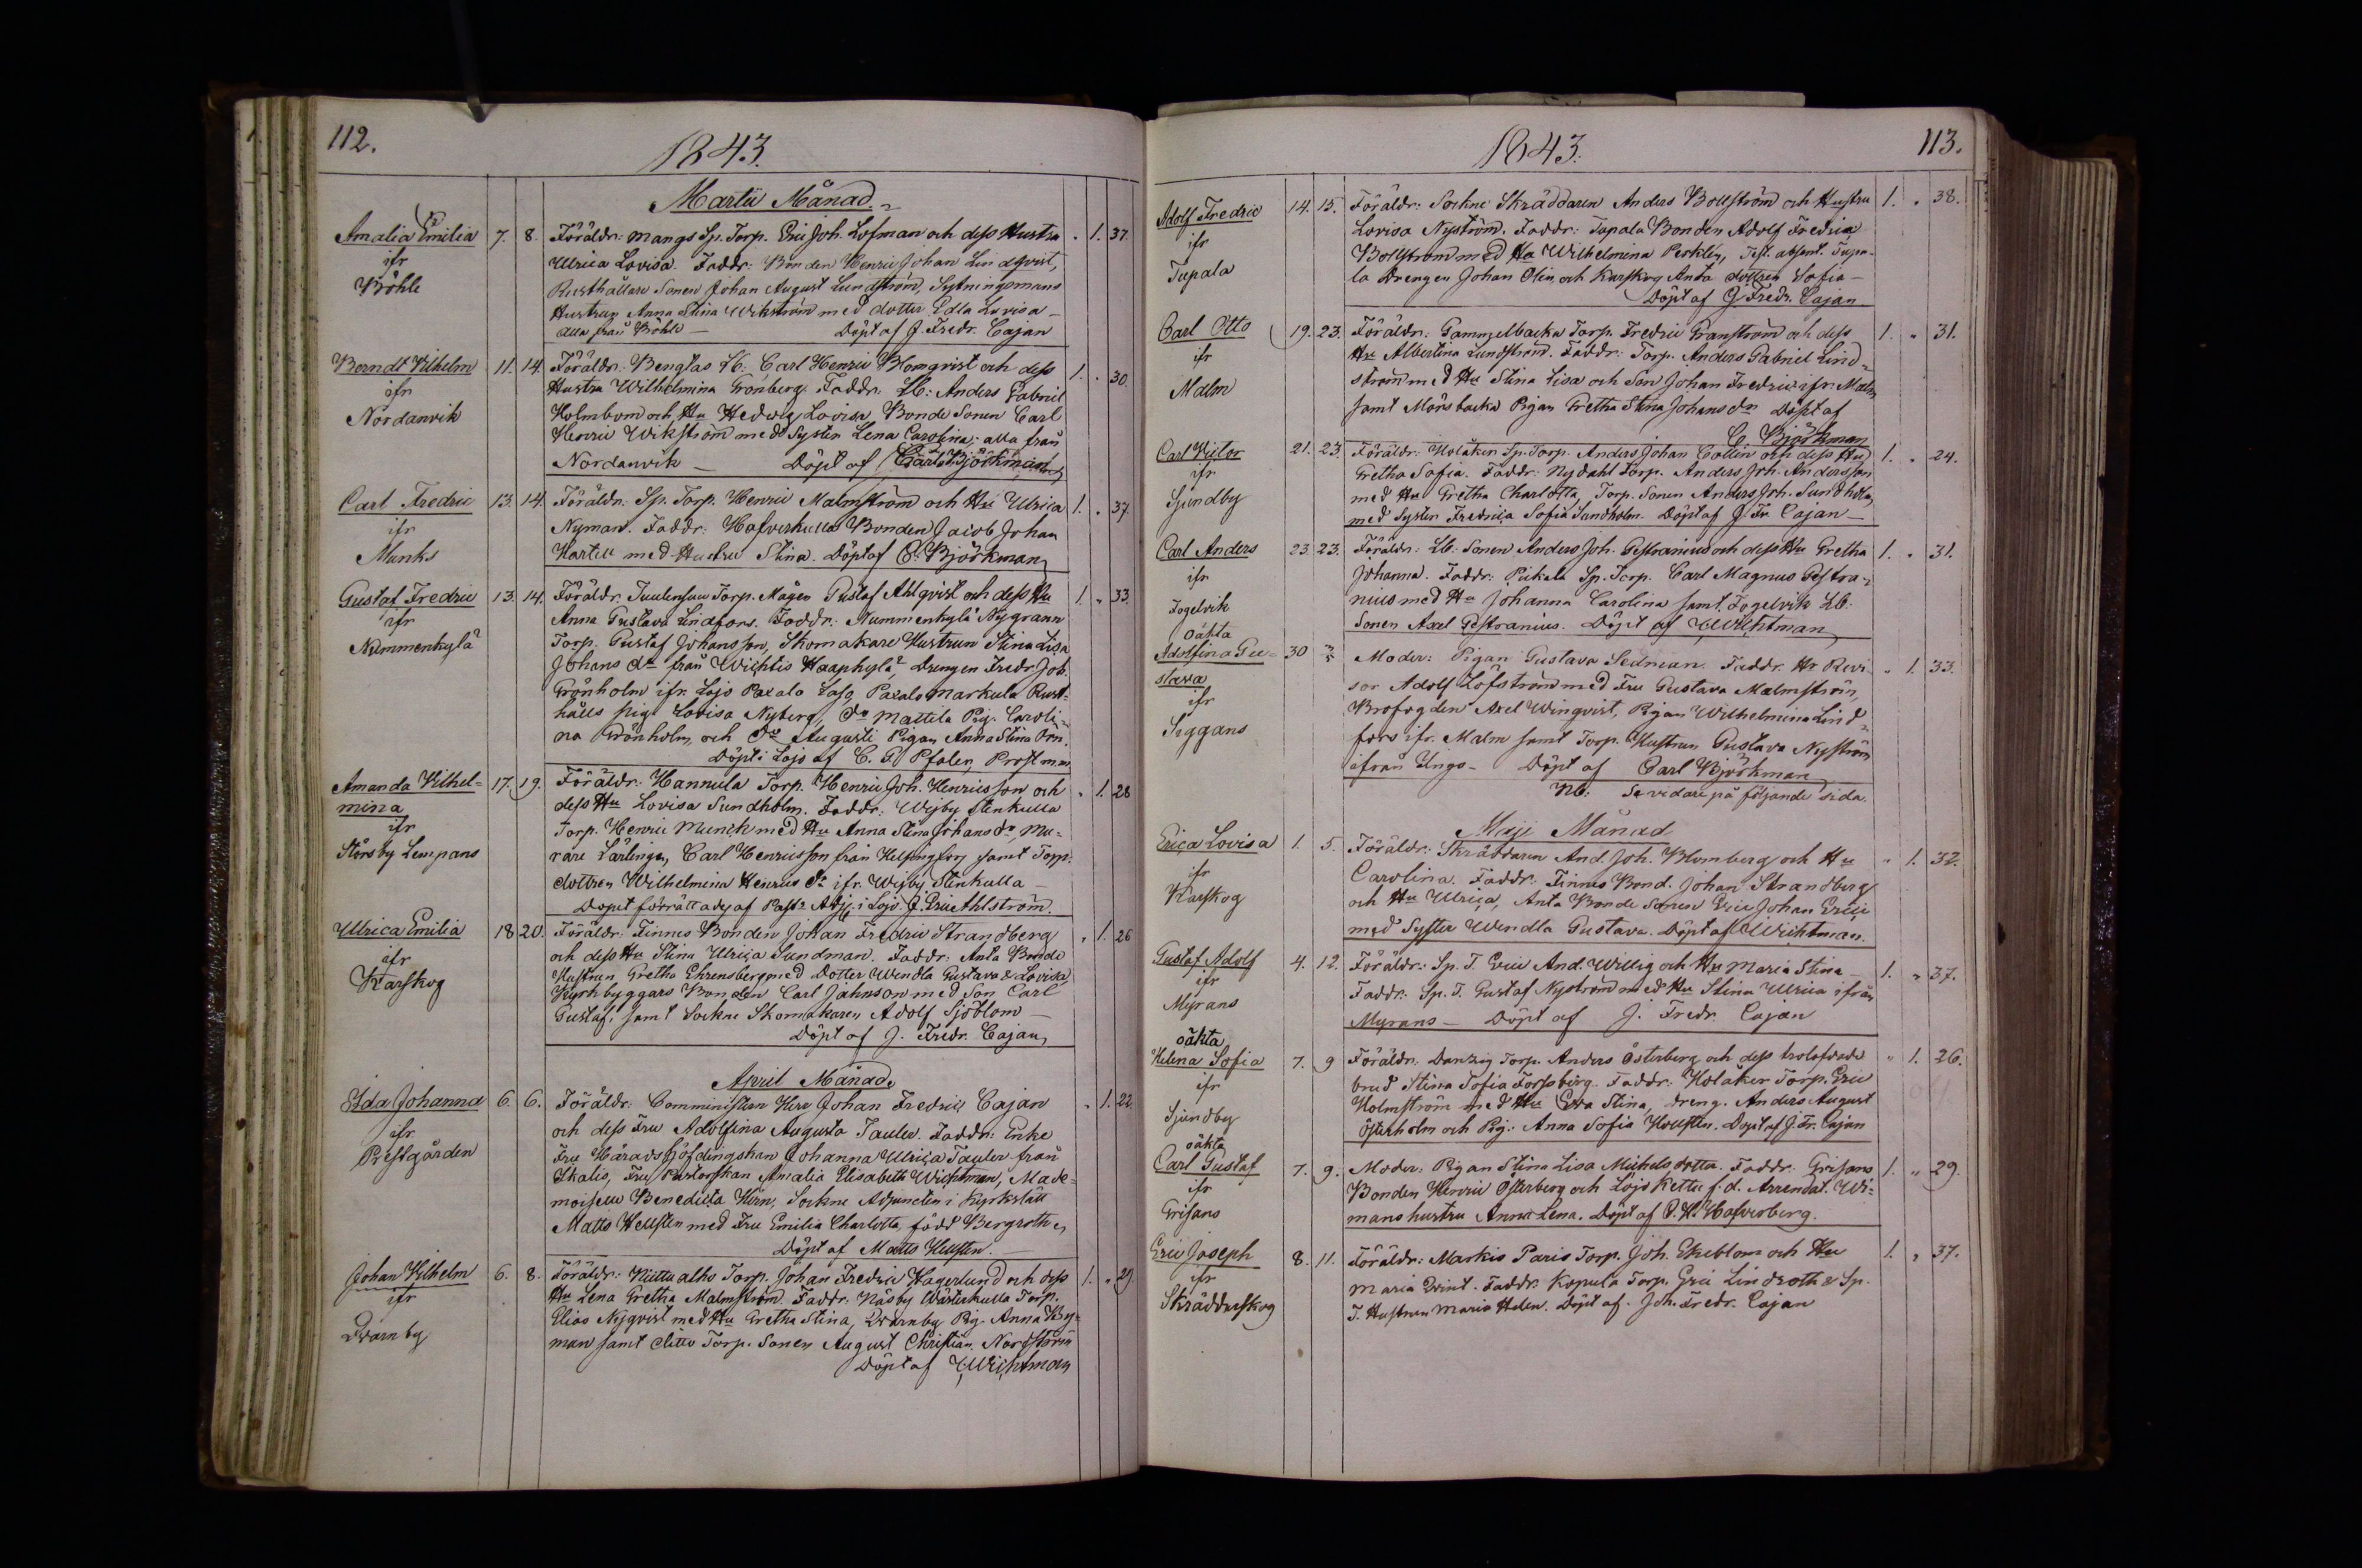 112.
1843.
Martii Månad.
Amalia Emilia
ifr
Böhle
7. 8. Föräldr: Mangs Sp. Torp. Eric Joh. Lofman och dess Hustru " 1. 37.
Ulrica Lovisa. Faddr: Bonden Henric Johan Lindqvist,
Rusthållare Sonen Johan August Lundström, Sytningsmans
Hustrun Anna Stina Wikström med dotter Edla Lovisa –
alla från Böhle – Döpt af J. Fredr. Cajan
Berndt Vilhelm
ifr
Nordanvik
11. 14. Föräldr: Bengtas Lb: Carl Henric Blomqvist och dess 1. " 30.
Hustru Wilhelmina Grönberg. Faddr: Lb: Anders Gabriel
Holmbom och Hu Hedwig Lovisa, Bonde Sonen Carl
Henric Wikström med Systen Lena Carolina; alla från
Nordanvik – Döpt af Carl Björkman
Carl Fredric
ifr
Munks
13. 14. Föräldr: Sp. Torp. Henric Malmström och Hu Ulrica 1. " 37.
Nyman. Faddr: Hafverkulla Bonden Jacob Johan
Hartell med Hustru Stina. Döpt af C. Björkman
Gustaf Fredric
ifr
Nummenkylä
13. 14. Föräldr. Torp. Mågen Gustaf Ahlqvist och dess Hu 1. " 33.
Anna Gustava Lindfors. Faddr: Nummenkylä Nygrann
Torp. Gustaf Johansson, Skomakare Hustrun Stina Lisa
Johans dr från Wichtis Haapkylä, Drengen Fredr. Joh.
Grönholm ifr. Lojo Paxalo Paxalo Markula Rust-
hålls pig. Lovisa Nyberg, do Mattila Pig. Caroli-
na Grönholm, och do Augusti Pigan Anna Stina
Döpt i Lojo af C. G. Pfaler, Prostman
Amanda Vilhel-
mina
ifr
Störsby Lempans
17. 19. Föräldr: Hannula Torp. Henric Joh. Henricsson och " 1. 28
dess Hu Lovisa Sundholm. Faddr: Wejby Stenkulla
Torp. Henric Munck med Hu Anna Stina Johans dr, Mu-
rare Lärlingen, Carl Henricsson från Helsingfors samt Torp.
dottren Wilhelmina Henrics dr ifr. Wijby Stenkulla –
Dopet förrättadt af Past: Adj: i Lojo J. Eric Ahlström.
Ulrica Emilia
ifr
Karskog
18 20. Föräldr: Finnus Bonden Johan Fredric Strandberg " 1. 26
och dess Hu Stina Ulrica Sundman. Faddr: Anta Bonde
Hustrun Gretha Ehrensberg med Dotter Wendla Gustava & Lovisa,
Kyrkbyggars Bonden Carl Johnson med Son Carl
Gustaf, samt Sockne Skomakaren Adolf Sjöblom –
Döpt af J. Fredr. Cajan
April Månad
Ida Johanna
ifr
Prestgården
6 6. Föräldr: Comministern Herr Johan Fredric Cajan " 1. 22.
och dess Fru Adolfina Augusta Tauler. Faddr: Enke
Fru Häradshöfdingskan Johanna Ulrica Tauler från
Ikalis, Fru Pastorskan Amalia Elisabeth Wichtman, Made-
moiselle Benedicta Hirn, Sockne Adjuncten i Kyrkslätt
Matts Hellsten med Fru Emilia Charlotta, född Bergroth
Döpt af Matts Hellsten.
Johan Vilhelm
ifr
Qvarnby
6. 8. Föräldr: Kiittu alho Torp. Johan Fredric Hagerlund och dess 1. " 29.
Hu Lena Gretha Malmström. Faddr: Näsby Wästerkulla Torp.
Elias Nyqvist med Hu Gretha Stina, Qvarnby Pig. Anna Ny-
man samt ditto Torp. Sonen August Christian Nordström
Döpt af Wichtman
1843.
113.
Adolf Fredric
ifr
Tupala
14. 15. Föräldr: Sockne Skräddaren Anders Bollström och Hustru 1. " 38.
Lovisa Nyström. Faddr: Tupala Bonden Adolf Fredric
Bollström med Hu Wilhelmina Perklén, Test. absent. Tupa-
la Drengen Johan Olin och Karskog Anta dottren Sofia –
Döpt af J. Fredr. Cajan
Carl Otto
ifr
Malm
19. 23. Föräldr: Gammelbacka Torp. Fredric Granström och dess 1. " 31.
Hu Albertina Lundström. Faddr: Torp. Anders Gabriel Lind-
ström med Hu Stina Lisa och Son Johan Fredric ifr. Malm
samt Mörsbacka Pigan Gretha Stina Johans dr Döpt af
C. Björkman
Carl Victor
ifr
Sjundby
21. 23. Föräldr: Holåker Sp. Torp. Anders Johan Collin och dess Hu 1. " 24.
Gretha Sofia. Faddr: Nydahl Torp. Anders Joh. Andersson
med Hu Gretha Charlotta, Torp. Sonen Anders Joh. Sundholm,
med Syster Fredrica Sofia Sundholm. Döpt af J. Fr. Cajan –
Carl Anders
ifr
Fogelvik
23. 23. Föräldr: Lb: Sonen Anders Joh. Gestranius och dess Hu Gretha 1. " 31.
Johanna. Faddr: Pickala Sp. Torp. Carl Magnus Gestra-
nius med Hu Johanna Carolina samt Fogelvik Lb:
Sonen Axel Gestranius. Döpt af Wichtman
oäkta
Adolfina Gu-
stava
ifr
Siggans
30 Moder: Pigan Gustava Sedman. Faddr. Hr Revi- " 1. 33.
sor Adolf Löfström med Fru Gustava Malmström,
Brofogden Axel Winqvist, Pigan Wilhelmina Lind-
fors ifr. Malm samt Torp. Hustrun Gustava Nyström
ifrån Unga – Döpt af Carl Björkman
Nb: Se vidare på följande sida.
Maji Månad
Erica Lovisa
ifr
Karskog
1. 5. Föräldr: Skräddaren And. Joh. Blomberg och Hu " 1. 32.
Carolina. Faddr: Finnus Bond. Johan Strandberg
och Hu Ulrica, Anta Bonde Sonen Eric Johan Erici
med Syster Wendla Gustava. Döpt af Wichtman.
Gustaf Adolf
ifr
Myrans
4. 12. Föräldr: Sp. T. Eric And. Willig och Hu Maria Stina – 1. " 37.
Faddr: Sp. T. Gustaf Nyström med Hu Stina Ulrica ifrån
Myrans – Döpt af J. Fredr. Cajan
oäkta
Helena Sofia
ifr
Sjundby
7. 9 Föräldr: Danzig Torp. Anders Österberg och dess trolofvade " 1. 26.
brud Stina Sofia Forssberg. Faddr: Holåker Torp. Eric
Holmström med Hu Eva Stina, dreng. Anders August
Österholm och Pig: Anna Sofia Hollsten. Döpt af J. Fr. Cajan
oäkta
Carl Gustaf
ifr
Grisans
7. 9. Moder: Pigan Stina Lisa Michels dotter. Faddr: Grisans 1. " 29.
Bonden Henric Österberg och Lojo Kettu f. d. Arrendat. Wi-
mans hustru Anna Lena. Döpt af Hafverberg.
Eric Joseph
ifr
Skräddarskog
8. 11. Föräldr: Markis Paris Torp. Joh. Ekeblom och Hu 1. " 37.
Maria Qvint. Faddr: Kopula Torp. Eric Lindroth & Sp.
T. Hustrun Maria Helen. Döpt af Joh. Fredr. Cajan